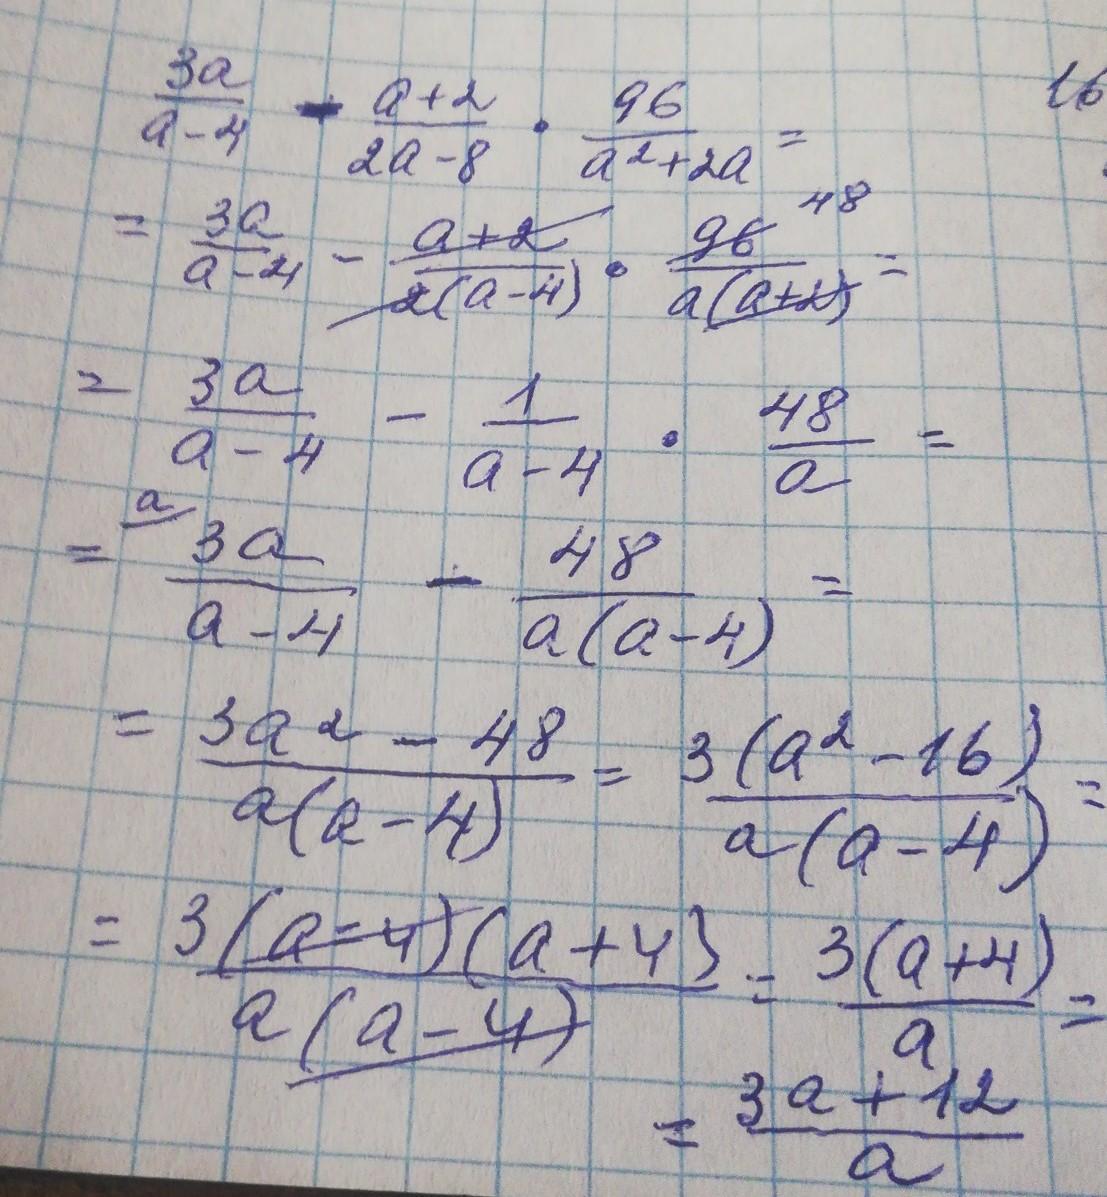 3a/(a-4) - (a+2)/(2a-8) · 96/(a²+2a) =
16
= 3a/(a-4) - (a+2)/(2(a-4)) · 96/(a(a+2)) = 48
= 3a/(a-4) - 1/(a-4) · 48/a =
a
= 3a/(a-4) - 48/(a(a-4)) =
= (3a²-48)/(a(a-4)) = 3(a²-16)/(a(a-4)) =
= 3(a-4)(a+4)/(a(a-4)) = 3(a+4)/a =
= (3a+12)/a